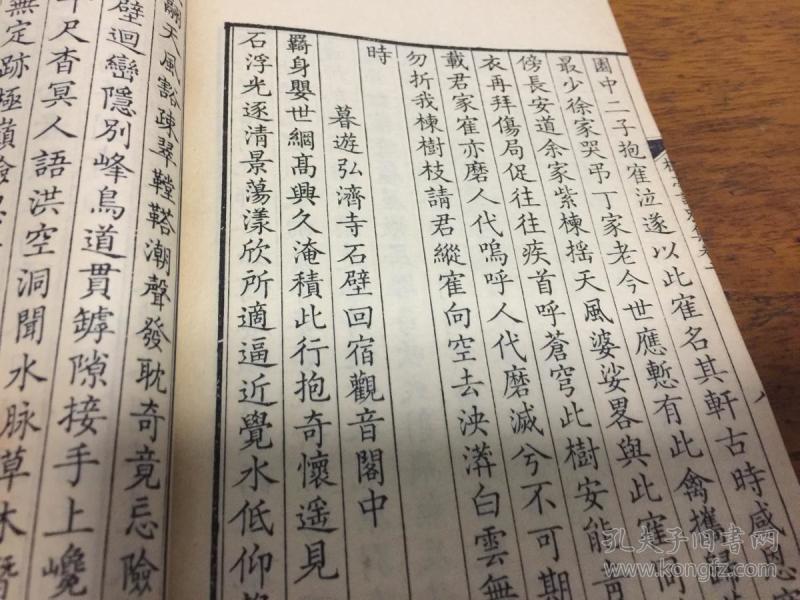 圖中二子抱寉泣遂以此寉名其軒古時感
最少徐家哭弔丁家老今世應慙有此禽攜
傍長安道余家紫楝揺天風婆娑畧與此寉
衣再拜傷局促往往疾首呼蒼穹此樹安能
載君家寉亦磨人代嗚呼人代磨滅兮不可期
勿折我楝樹枝請君縱寉向空去泱漭白雲無
時
暮遊弘濟寺石壁回宿觀音閣中
羇身嬰世綱髙興久淹積此行抱奇懷遥見
石浮光逐清景蕩漾欣所適逼近覺水低仰
天風豁疎翠鞺鞳潮聲發耽奇竟忘險
壁迴巒隱別峰鳥道貫罅隙接手上巉
尺杳冥人語洪空洞聞水脉草木
無定跡極嶺險
孔夫子旧书网
www.kongfz.com